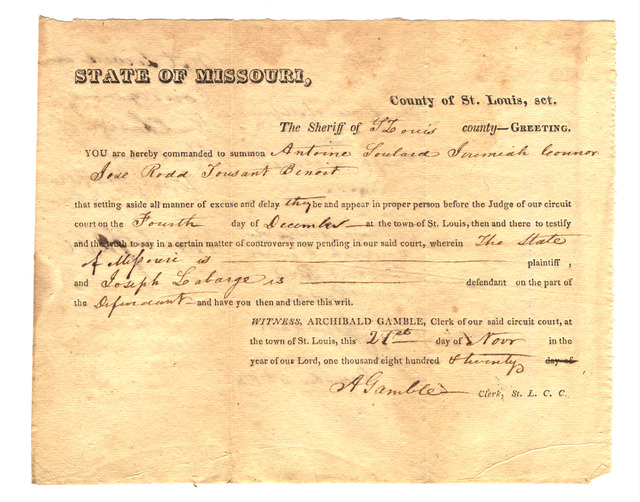 STATE OF MISSOURI,
County of St. Louis, sct.
The Sheriff of St Louis county—GREETING.
YOU are hereby commanded to summon Antoine Soulard Jeremiah Connor
Jose Rodd Tousant Benoit
that setting aside all manner of excuse and delay they be and appear in proper person before the Judge of our circuit
court on the Fourth day of December at the town of St. Louis, then and there to testify
and the truth to say in a certain matter of controversy now pending in our said court, wherein The State
of Missouri is plaintiff,
and Joseph Labarge is defendant on the part of
the Defendant and have you then and there this writ.
WITNESS, ARCHIBALD GAMBLE, Clerk of our said circuit court, at
the town of St. Louis, this 21st day of Novr in the
year of our Lord, one thousand eight hundred & twenty day of
A Gamble Clerk, St. L. C. C.